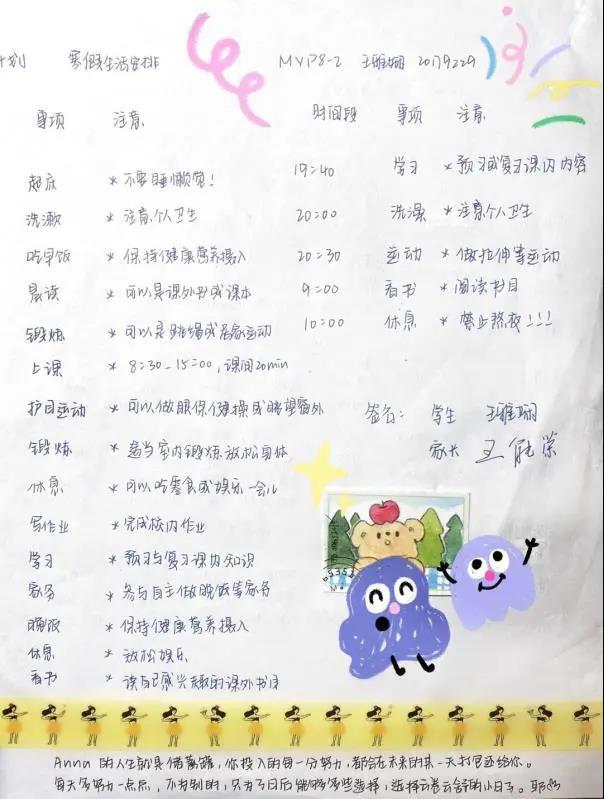 计划 寒假生活安排 MYP8-2 王雅娴 20179229
事项 注意
起床 *不要睡懒觉！
洗漱 *注意个人卫生
吃早饭 *保持健康营养摄入
晨读 *可以是课外书或课本
锻炼 *可以是跳绳或居家运动
上课 *8:30-15:00,课间20min
护目运动 *可以做眼保健操或眺望窗外
锻炼 *适当室内锻炼放松身体
休息 *可以吃零食或娱乐一会儿
写作业 *完成校内作业
学习 *预习与复习课内知识
家务 *参与自主做晚饭等家务
晚饭 *保持健康营养摄入
休息 *放松娱乐
看书 *读自己感兴趣的课外书目
时间段 事项 注意
19:40 学习 *预习或复习课内内容
20:00 洗澡 *注意个人卫生
20:30 运动 *做拉伸等运动
9:00 看书 *阅读书目
10:00 休息 *禁止熬夜!!!
签名： 学生 王雅娴
家长 王能荣
Anna 的人生就是储蓄罐，你投入的每一分努力，都会在未来的某一天打包还给你。
每天多努力一点点，不为别的，只为了日后能够多些选择，选择云卷云舒的小日子。